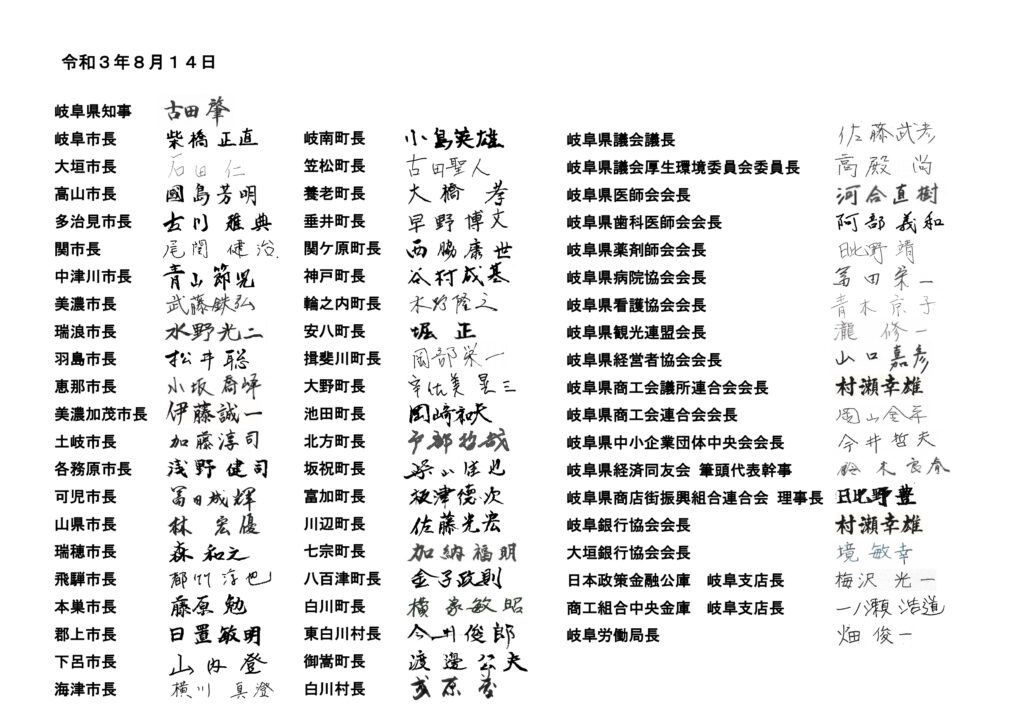 令和３年８月１４日
岐阜県知事 古田 肇
岐阜市長 柴橋 正直
大垣市長 石田 仁
高山市長 國島 芳明
多治見市長 古川 雅典
関市長 尾関 健治
中津川市長 青山 節児
美濃市長 武藤鉄弘
瑞浪市長 水野光二
羽島市長 松井 聡
恵那市長 小坂 喬峰
美濃加茂市長 伊藤誠一
土岐市長 加藤淳司
各務原市長 浅野 健司
可児市長 冨田成輝
山県市長 林 宏優
瑞穂市長 森 和之
飛騨市長 都竹 淳也
本巣市長 藤原 勉
郡上市長 日置敏明
下呂市長 山内 登
海津市長 横川 真澄
岐南町長 小島英雄
笠松町長 古田聖人
養老町長 大橋 孝
垂井町長 早野 博文
関ケ原町長 西脇康世
神戸町長 谷村成基
輪之内町長 木野隆之
安八町長 堀 正
揖斐川町長 岡部栄一
大野町長 宇佐美 晃三
池田町長 岡崎和夫
北方町長 戸部哲哉
坂祝町長
富加町長 板津德次
川辺町長 佐藤光宏
七宗町長 加納福明
八百津町長 金子政則
白川町長 横家敏昭
東白川村長 今井俊郎
御嵩町長 渡邊公夫
白川村長 成原 茂
岐阜県議会議長 佐藤武彦
岐阜県議会厚生環境委員会委員長 高殿 尚
岐阜県医師会会長 河合直樹
岐阜県歯科医師会会長 阿部義和
岐阜県薬剤師会会長 日比野 靖
岐阜県病院協会会長 冨田 栄一
岐阜県看護協会会長 青木京子
岐阜県観光連盟会長 瀧 修一
岐阜県経営者協会会長 山口嘉彦
岐阜県商工会議所連合会会長 村瀬幸雄
岐阜県商工会連合会会長 岡山金平
岐阜県中小企業団体中央会会長 今井哲夫
岐阜県経済同友会 筆頭代表幹事 鈴木良春
岐阜県商店街振興組合連合会 理事長 日比野豊
岐阜銀行協会会長 村瀬幸雄
大垣銀行協会会長 境 敏幸
日本政策金融公庫 岐阜支店長 梅沢 光一
商工組合中央金庫 岐阜支店長 一ノ瀬 浩道
岐阜労働局長 畑 俊一